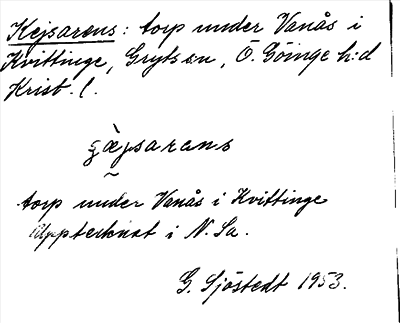 Kejsarens: torp under Vanås i
Kvittinge, Gryts sn, Ö. Göinge h:d
Krist. l.
torp under Vanås i Kvittinge
Upptecknat i N. Sa.
G. Sjöstedt 1953.